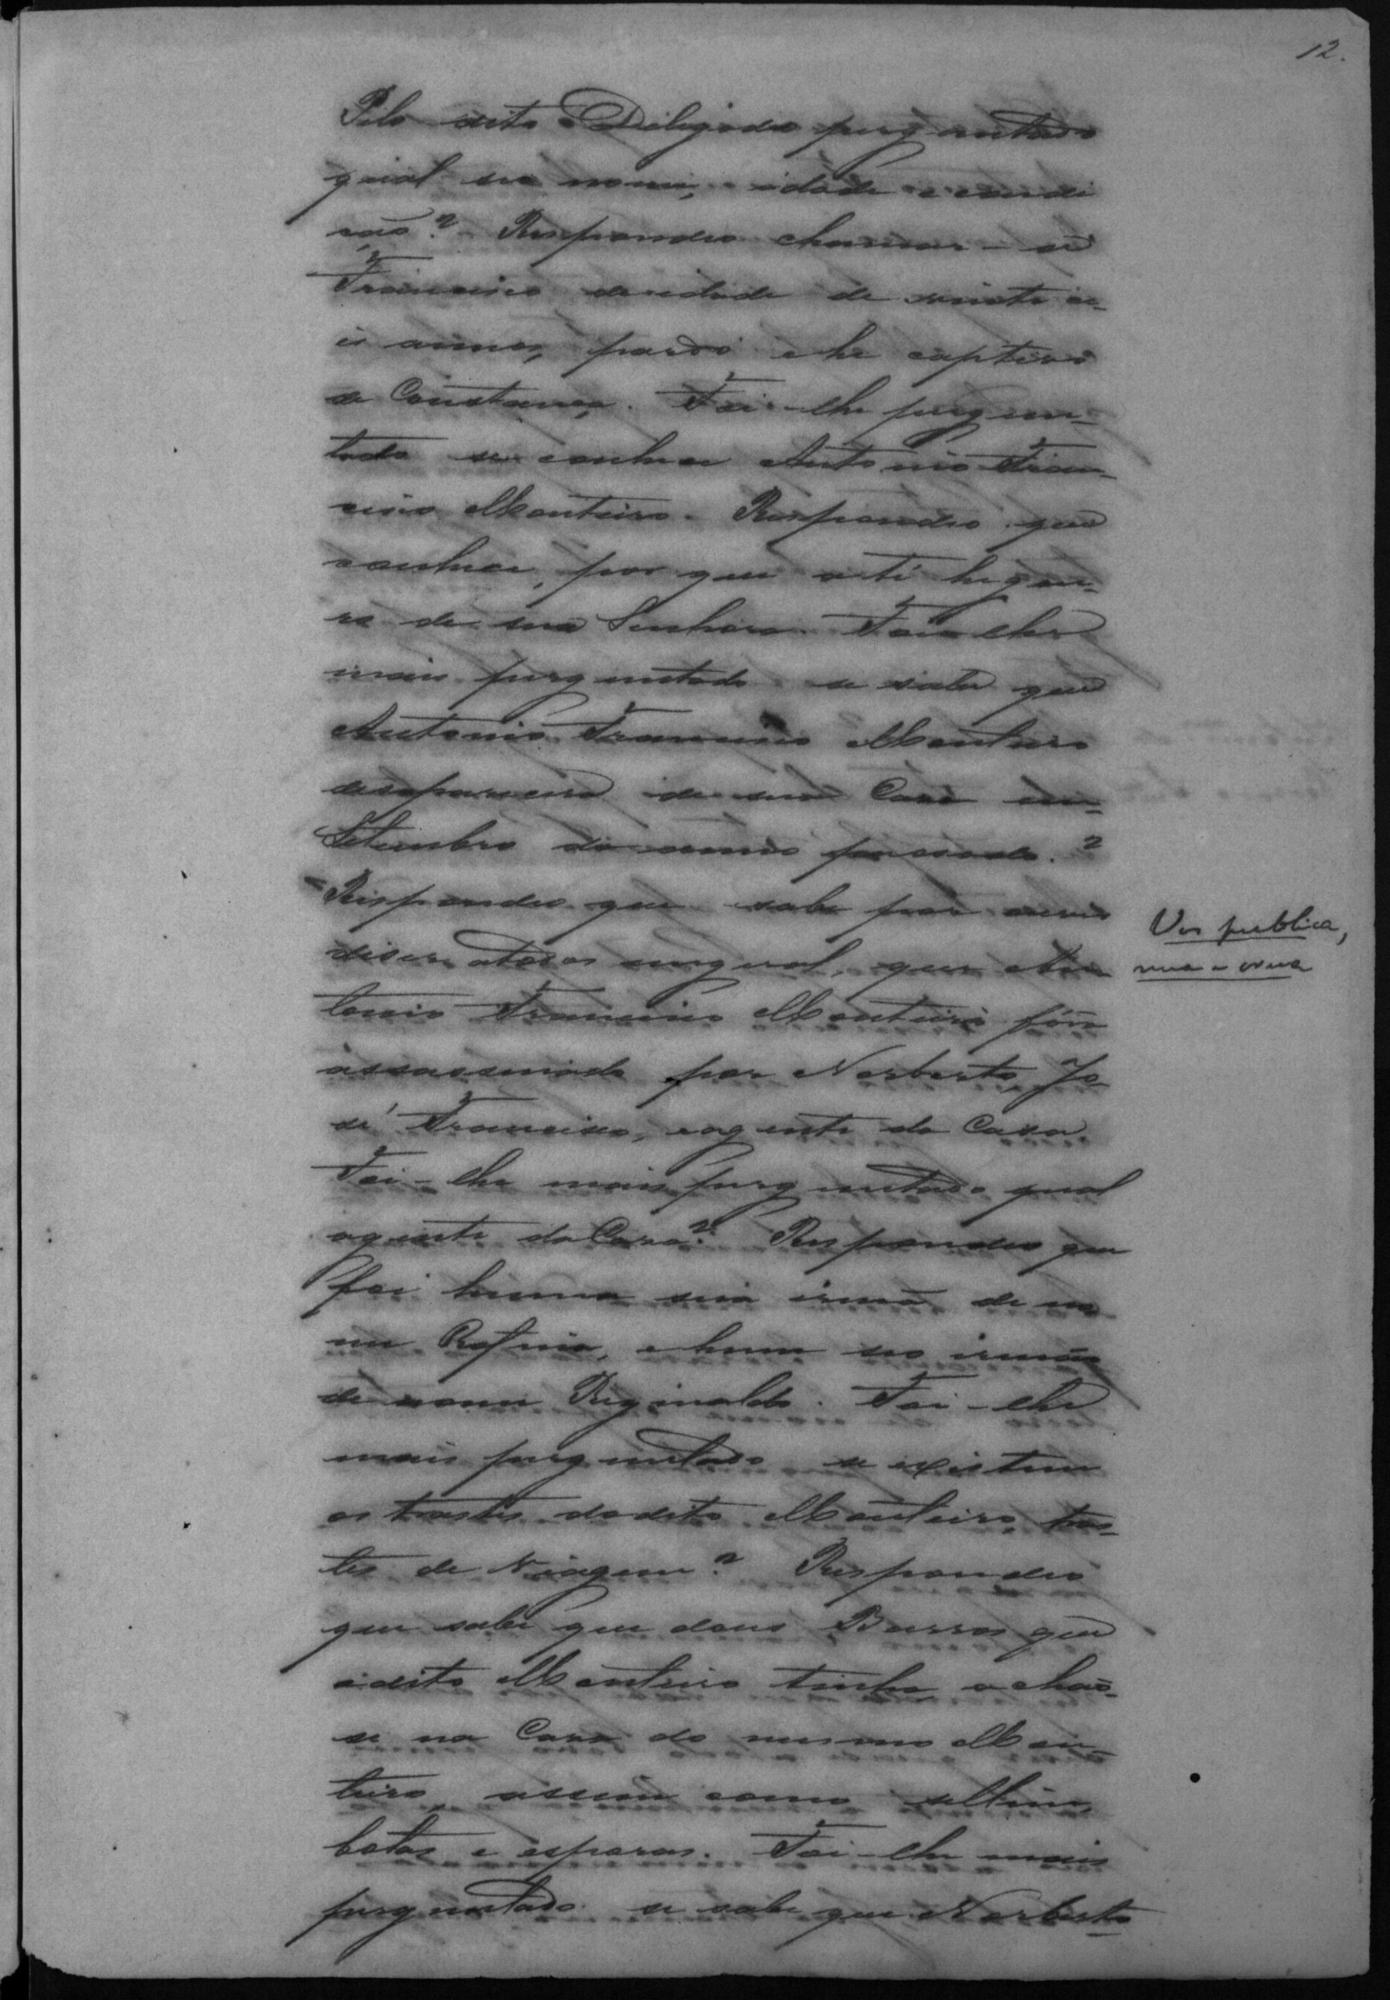 12.
Pelo dito Deligado perguntado
qual seo nome, idade e condi
ção? Respondeo chamar-se
Francisco de idade de vinte se-
is annos, pardo e he captivo
de Constança. Foi-lhe pergun-
tado se conhece Antonio Fran-
cisco Monteiro. Respondeo que
conhece, por que
de sua Senhora. Foi-lhe
mais perguntado se sabe que
Antonio Francisco Monteiro
desapareceo de sua Caza em
Setembro do anno passado.?
Respondeo que sabe por ouvir
dizer a todos em geral, que An
tonio Francisco Monteiro fôra
assassinado por Norberto, Jo-
sé Francisco, e a gente da Caza.
Foi-lhe mais perguntado qual
a gente da Caza? Respondeo que
foi huma sua irmã de no
me Rofina, e hum seo irmão
de nome Reginaldo. Foi-lhe
mais perguntado se existem
os trastes do dito Monteiro, tras-
tes de viagem? Respondeo
que sabe que dous Burros que
o dito Monteiro tinha, achaõ-
se na Caza do mesmo Mon-
teiro, assim como sellim,
botas e esporas. Foi-lhe mais
perguntado se sabe que Norberto
Vos publica,